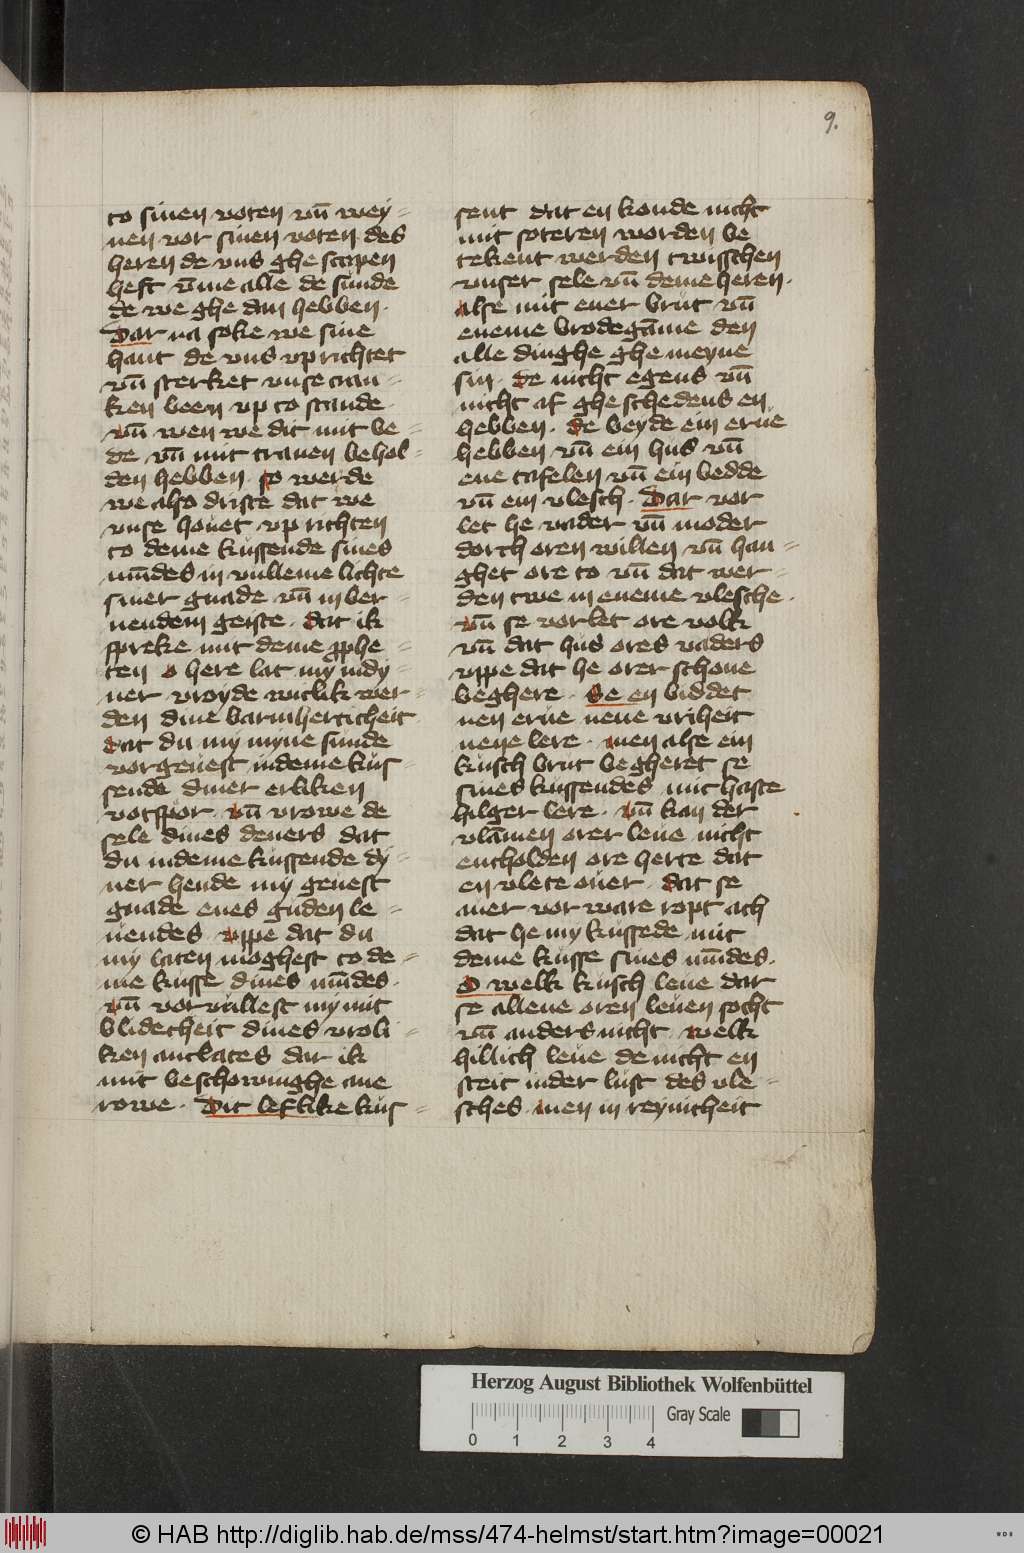 9.
to sinen voten vn̄ wey⸗
nen vor sinen voten des
heren de vns ghe scapen
heft v̄me alle de sunde
de we ghe dan hebben·
Dar na soke we sine
hant de vns vp richtet
vn̄ sterket vnse cran⸗
ken been vp to stande·
vn̄ wen we dit mit be⸗
de vn̄ mit tranen behol⸗
den hebben· so werde
we also driste dat we
vnse houet vp richten
to deme küssende sines
mn̄des in vulleme lichte
siner gnade vn̄ in ber⸗
nendem geiste· dat ik
spreke mit deme ꝓphe⸗
ten o here lat my in dy⸗
ner vroyde wulik wer⸗
den dine barmherticheit
dat du my myne sunde
vorgeuest in deme küs⸗
sende diner erliken
votspor· vn̄ vrowe de
sele dines deners dat
du in deme küssende dy⸗
ner hende my geuest
gnade enes guden le⸗
uendes· vppe dat du
my laten moghest to de⸗
me küsse dines mn̄des·
vn̄ vorvullest my mit
blidecheit dines vroli⸗
ken antlates dar ik
mit beschowinghe ane
rowe· Dit leflike küs⸗
sent dat en konde nicht
mit soteren worden be
tekent werden twisschen
vnser sele vn̄ deme heren·
alse mit ener brut vn̄
eneme brodegāme den
alle dinghe ghe meyne
sin· de nicht egens vn̄
nicht af ghe schedens en
hebben· de beyde ein erue
hebben vn̄ ein hus vn̄
ene tafelen vn̄ ein bedde
vn̄ ein vlesch· Dar vor
let he vader vn̄ moder
dorch oren willen vn̄ han⸗
ghet ore to vn̄ dat wer⸗
den twe in eneme vlesche·
vn̄ se vorlet ore volk
vn̄ dat hus ores vaders
vppe dat he orer schone
beghere· Se en biddet
nen erue nene vriheit
nene lere· men alse ein
kusch brut begheret se
sines küssendes mit haste
hilger lere· vn̄ kan der
vlāmen orer leue nicht
entholden ore herte dat
en vlete ouer· dat se
auer vor ware ropt ach
dat he my küssede mit
deme küsse sines mn̄des·
O welk kusch leue dar
se allene oren leuen socht
vn̄ anders nicht· welk
hillich leue de nicht en
steit in der lust des vle⸗
sches· men in reynicheit
Herzog August Bibliothek Wolfenbüttel
0 1 2 3 4
Gray Scale
© HAB http://diglib.hab.de/mss/474-helmst/start.htm?image=00021